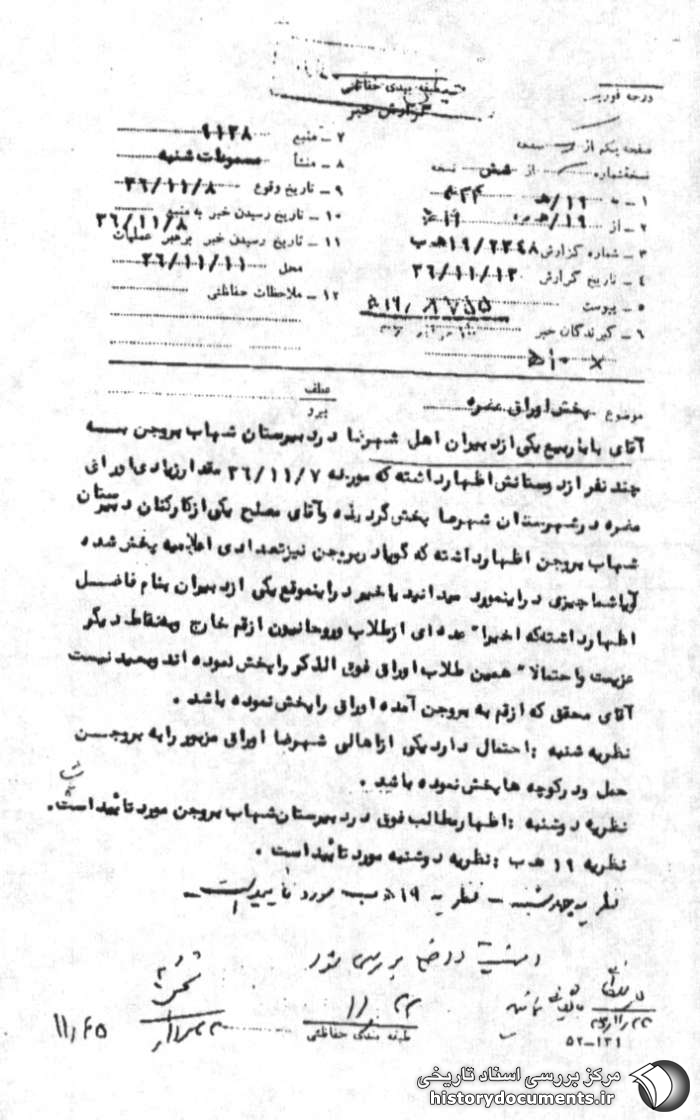 طبقه بندی حفاظتی
گزارش خبر
درجه فوریت
صفحه یکم از صفحه
نسخه شماره از شش نسخه
۱ - به ۱۹/هـ
۲ - از ۱۹/هـ
۳ - شماره گزارش ۱۹/۲۳۴۸ هـ ب
۴ - تاریخ گزارش ۳۶/۱۱/۱۳
۵ - پیوست
۶ - گیرندگان خبر
۷ - منبع ۹۱۳۸
۸ - منشأ مسموعات شنبه
۹ - تاریخ وقوع ۳۶/۱۱/۸
۱۰ - تاریخ رسیدن خبر به منبع ۳۶/۱۱/۸
۱۱ - تاریخ رسیدن خبر برهبر عملیات
محل ۳۶/۱۱/۱۱
۱۲ - ملاحظات حفاظتی
عطف
پیرو
موضوع پخش اوراق مضره
آقای بابا ربیع یکی از دبیران اهل شهرضا در دبیرستان شهاب بروجن به
چند نفر از دوستانش اظهار داشته که مورخه ۳۶/۱۱/۷ مقدار زیادی اوراق
مضره در شهرستان شهرضا پخش گردیده و آقای مصلح یکی از کارکنان دبیرستان
شهاب بروجن اظهار داشته که گویا در بروجن نیز تعدادی اعلامیه پخش شده
آیا شما چیزی در اینمورد میدانید یا خیر در اینموقع یکی از دبیران بنام فاضل
اظهار داشته که اخیرا" عده ای از طلاب و روحانیون از قم خارج و بنقاط دیگر
عزیمت و احتمالا" همین طلاب اوراق فوق الذکر را پخش نموده اند و بعید نیست
آقای محقق که از قم به بروجن آمده اوراق را پخش نموده باشد .
نظریه شنبه : احتمال دارد یکی از اهالی شهرضا اوراق مزبور را به بروجن
حمل و در کوچه ها پخش نموده باشد .
نظریه دوشنبه : اظهار مطالب فوق در دبیرستان شهاب بروجن مورد تائید است .
نظریه ۱۹ هـ ب : نظریه دوشنبه مورد تائید است .
نظریه چهارشنبه - نظریه ۱۹ هـ ب مورد تایید است
بررسی شود
۱۱ ۲۲
طبقه بندی حفاظتی
۵۲-۱۳۱
۱۱٫۲۵
مرکز بررسی اسناد تاریخی
historydocuments.ir